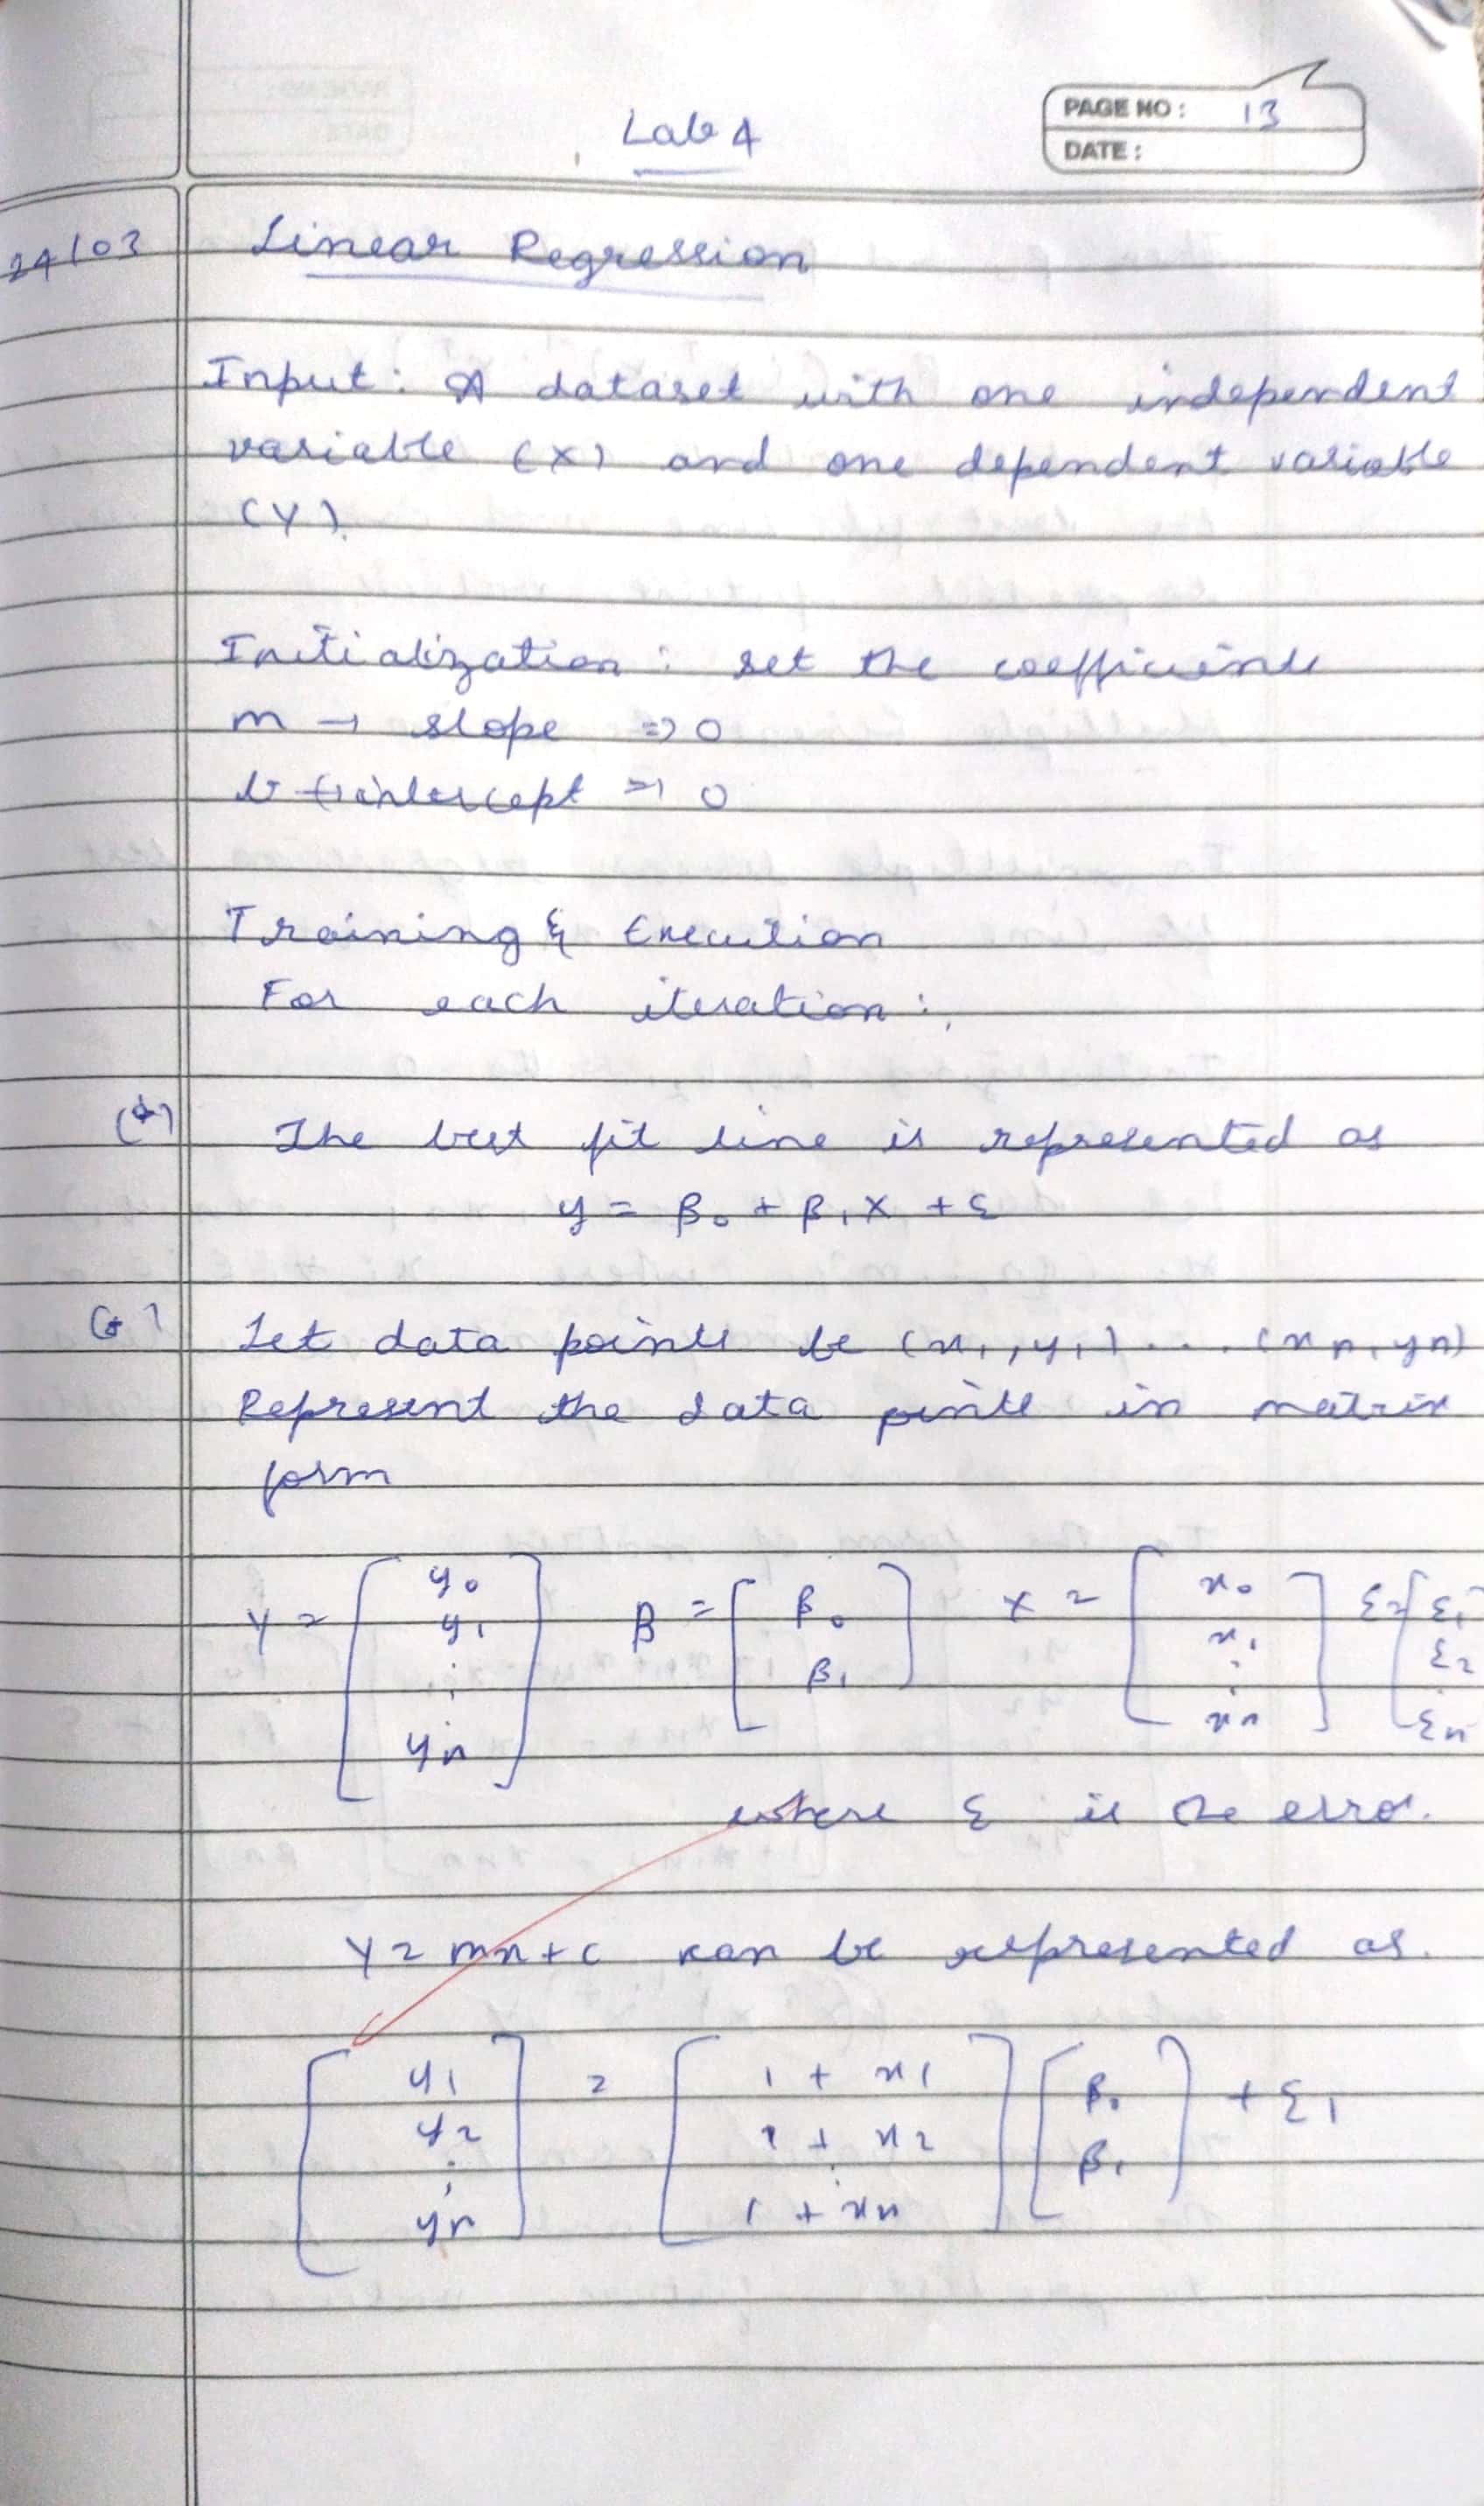 Lab 4
PAGE NO: 13
DATE:
24/03 Linear Regression
Input: A dataset with one independent
variable (X) and one dependent variable
(Y).
Initialization: set the coefficients
m → slope => 0
b → intercept => 0
Training & Execution
For each iteration:
(*) The best fit line is represented as
y = β₀ + β₁X + ε
(*) Let data points be (x₁, y₁) ... (xn, yn)
Represent the data points in matrix
form
Y = [y₀ y₁ : yn] β = [β₀ β₁] X = [x₀ x₁ : xn] ε = [ε₁ ε₂ : εn]
where ε is the error.
Y = mx + c can be represented as.
[y₁ y₂ : yn] = [1 + x₁ 1 + x₂ : 1 + xn] [β₀ β₁] + ε₁